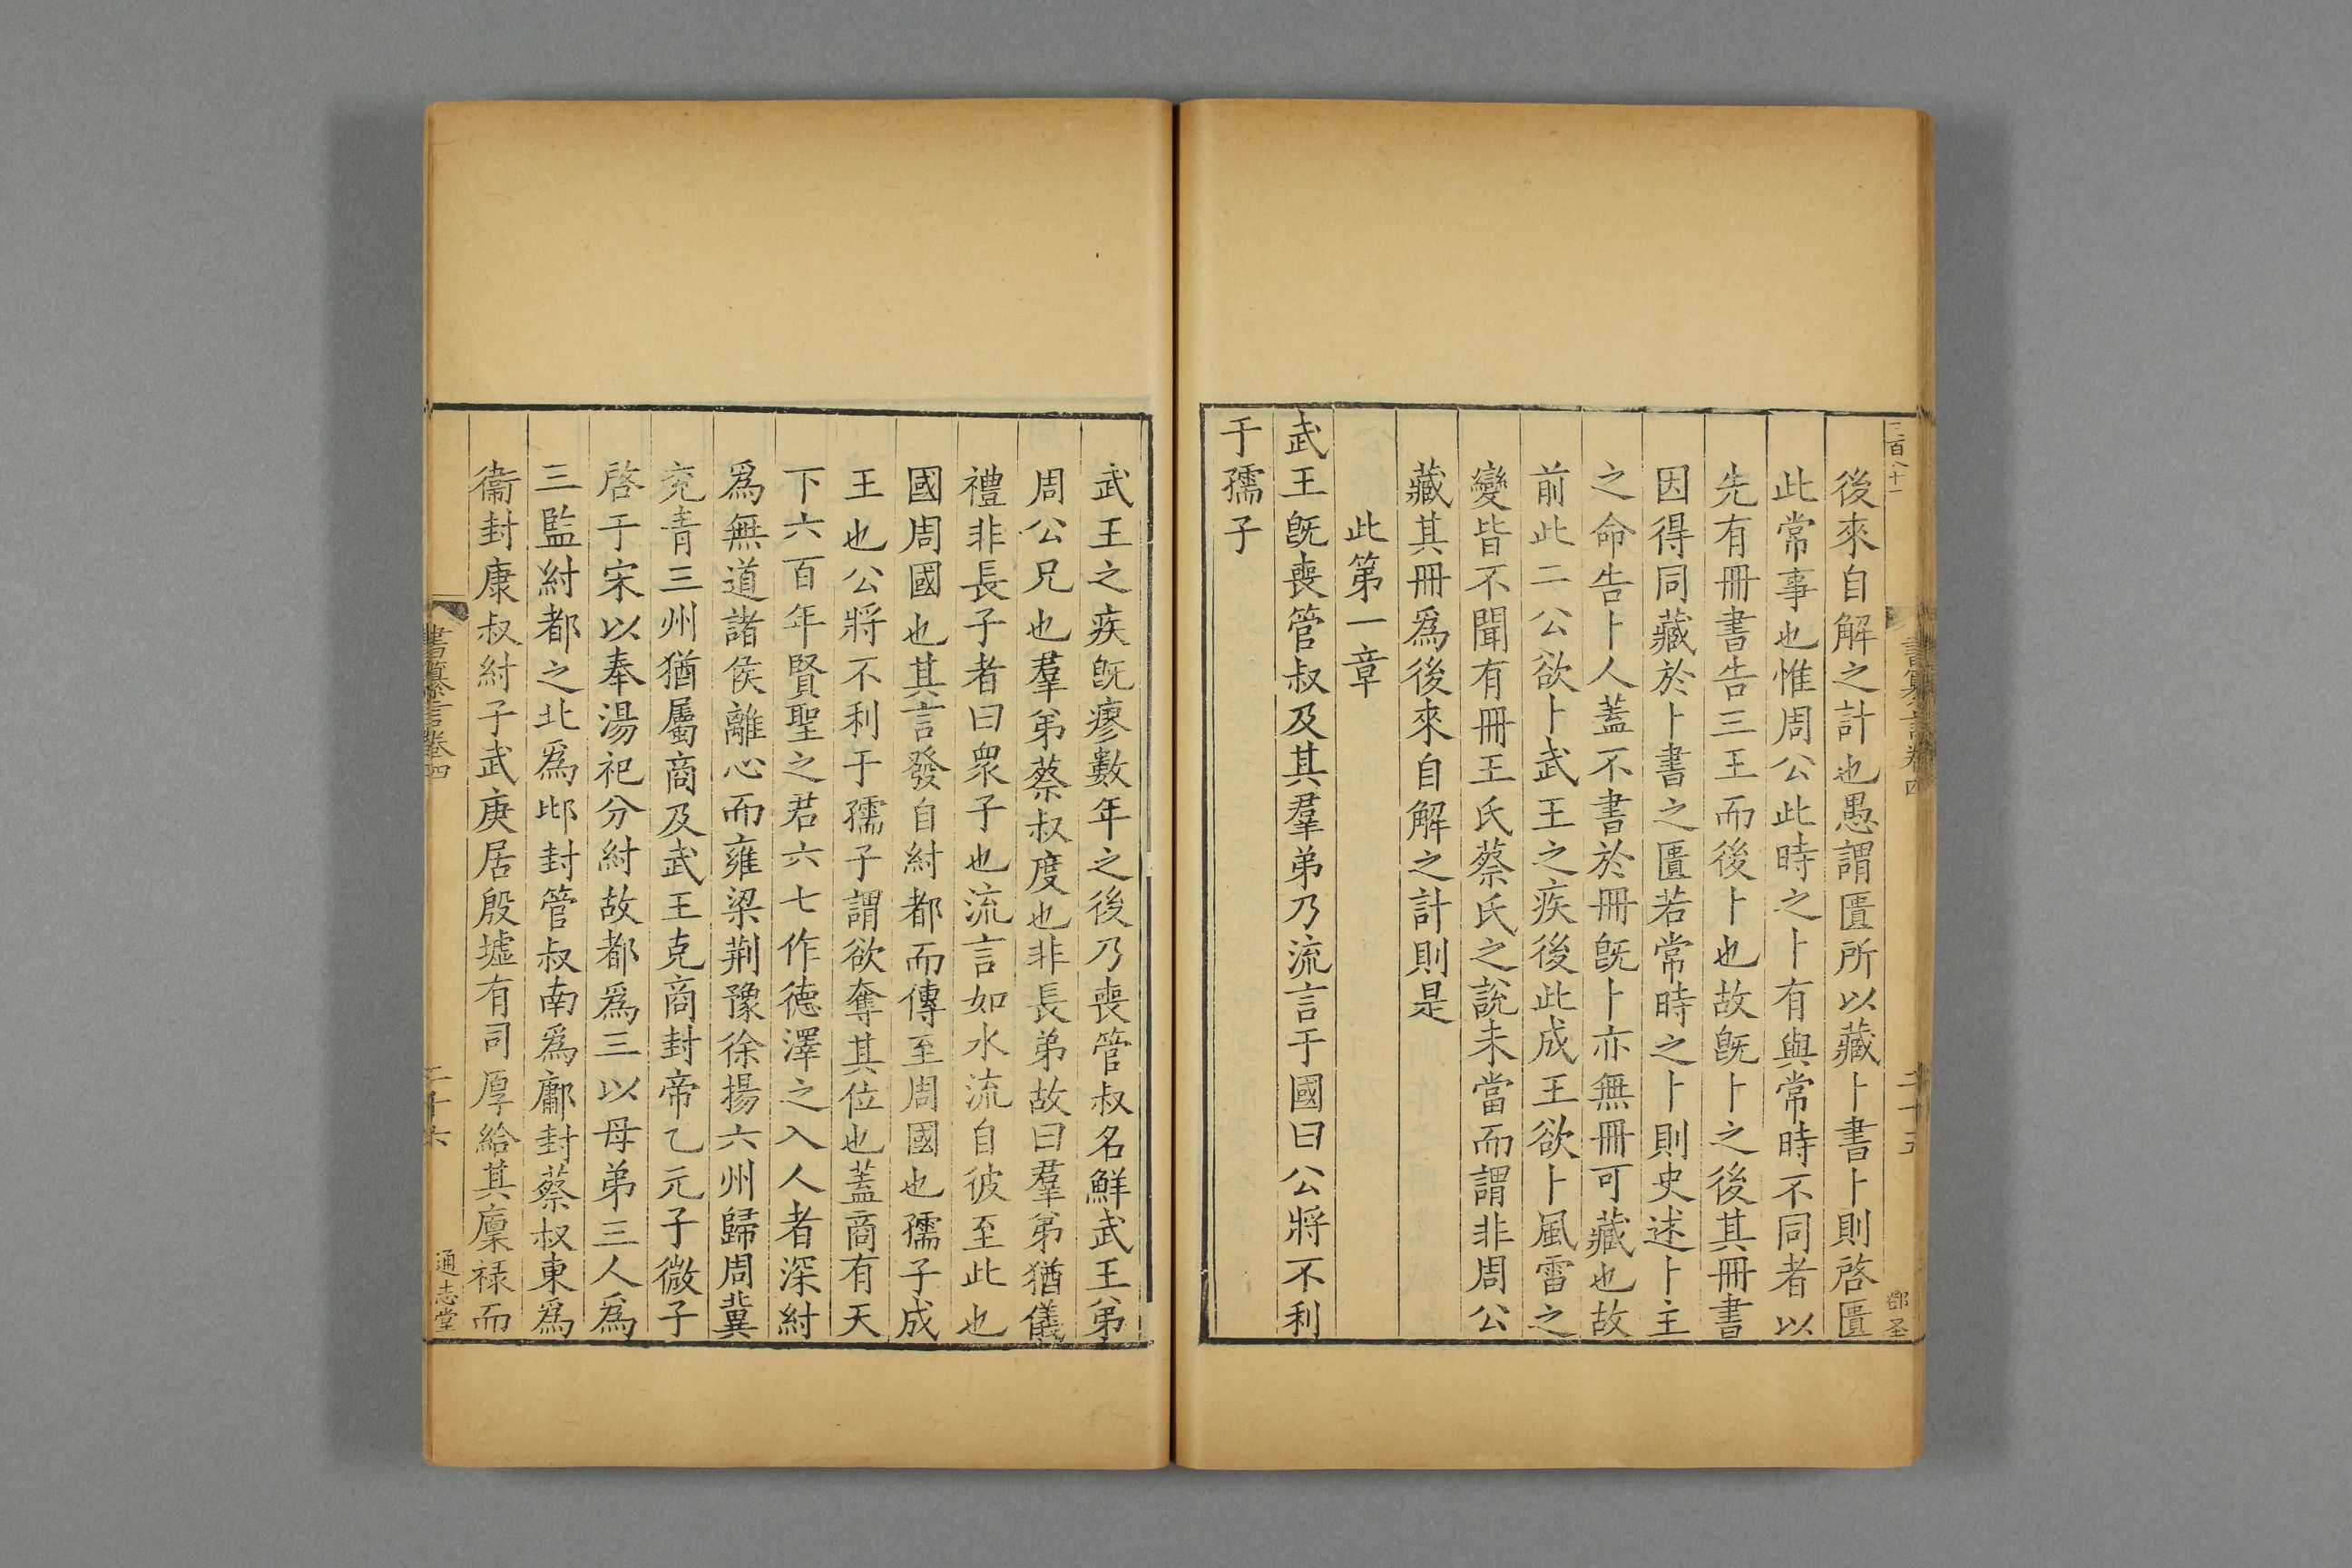 二百八十一
書纂言卷四
二十五
後來自解之計也愚謂匱所以藏卜書卜則啓匱
此常事也惟周公此時之卜有與常時不同者以
先有冊書告三王而後卜也故旣卜之後其冊書
因得同藏於卜書之匱若常時之卜則史述卜主
之命告卜人蓋不書於冊旣卜亦無冊可藏也故
前此二公欲卜武王之疾後此成王欲卜風雷之
變皆不聞有冊王氏蔡氏之說未當而謂非周公
藏其冊爲後來自解之計則是
此第一章
武王旣喪管叔及其羣弟乃流言于國曰公將不利
于孺子
武王之疾旣瘳數年之後乃喪管叔名鮮武王弟
周公兄也羣弟蔡叔度也非長弟故曰羣弟猶儀
禮非長子者曰衆子也流言如水流自彼至此也
國周國也其言發自紂都而傳至周國也孺子成
王也公將不利于孺子謂欲奪其位也蓋商有天
下六百年賢聖之君六七作德澤之入人者深紂
爲無道諸侯離心而雍梁荆豫徐揚六州歸周冀
兖青三州猶屬商及武王克商封帝乙元子微子
啓于宋以奉湯祀分紂故都爲三以母弟三人爲
三監紂都之北爲邶封管叔南爲鄘封蔡叔東爲
衞封康叔紂子武庚居殷墟有司厚給其廩祿而
書纂言卷四
二十六
通志堂